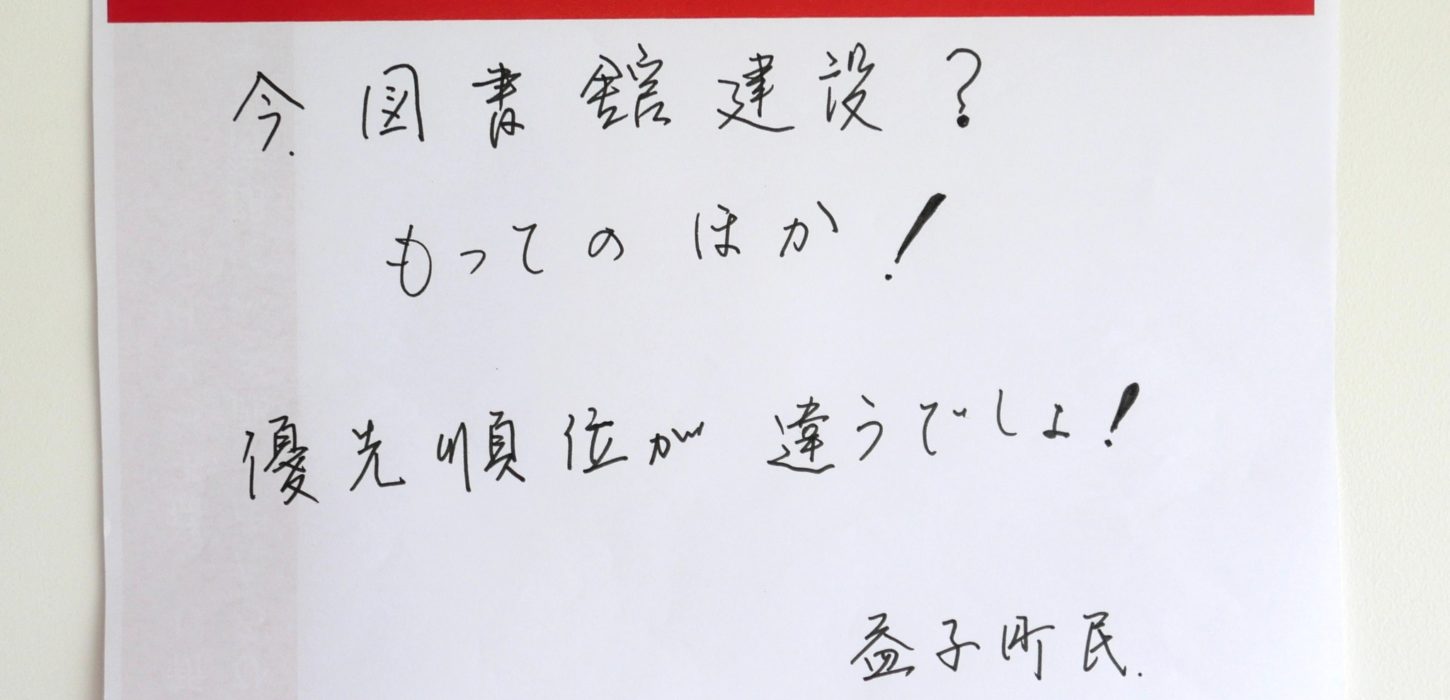 今図書館建設?
もってのほか!
優先順位が違うでしょ!
益子町民.